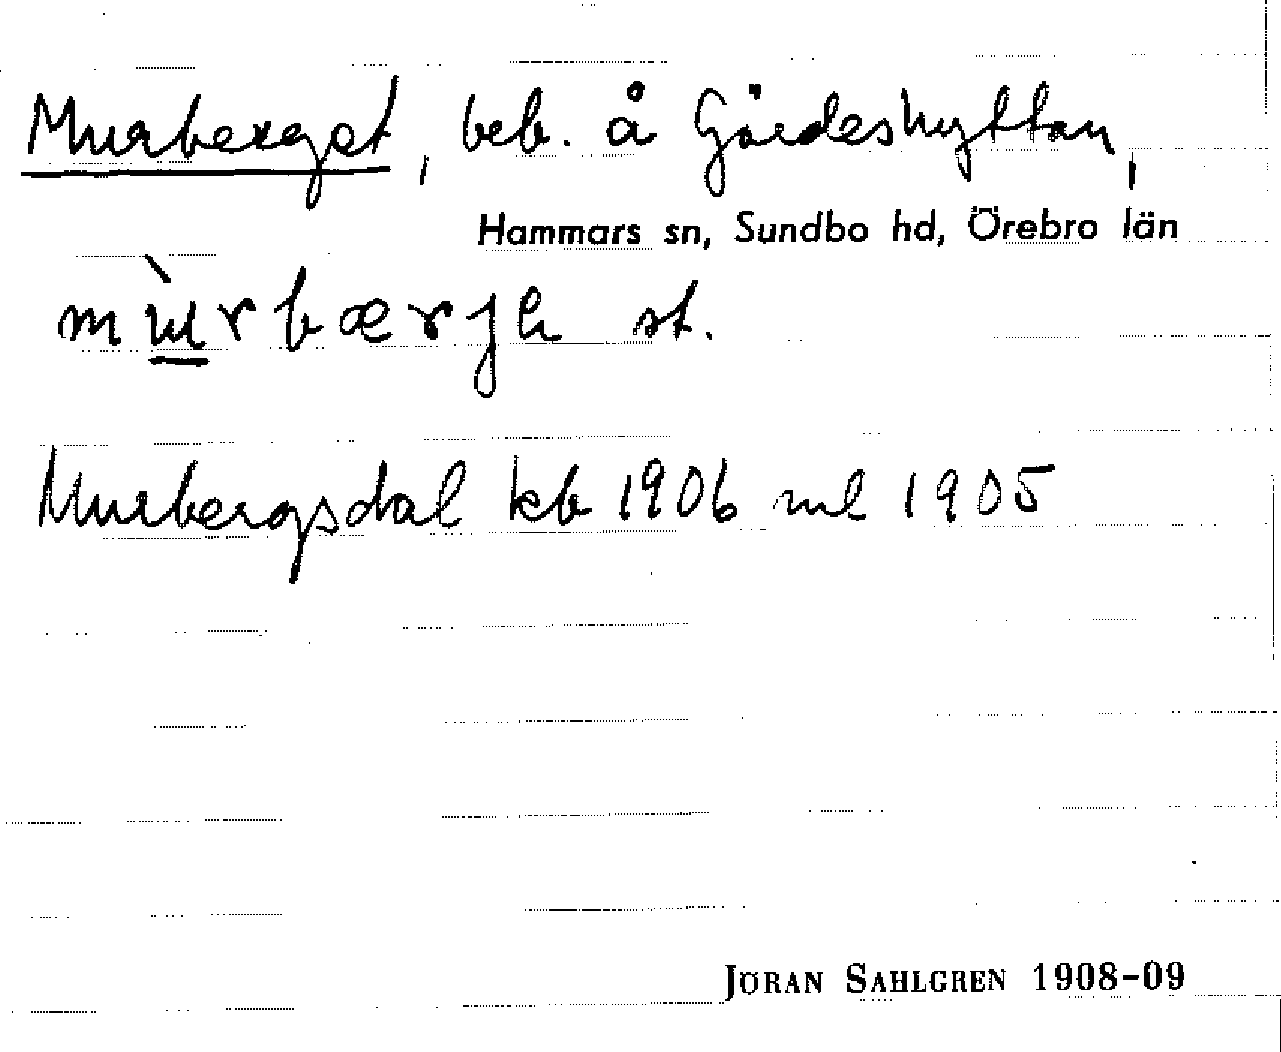 Murberget, beb. å Gärdeshyttan,
Hammars sn, Sundbo hd, Örebro län
st.
Murbergsdal kb 1906 ml 1905
JÖRAN SAHLGREN 1908-09